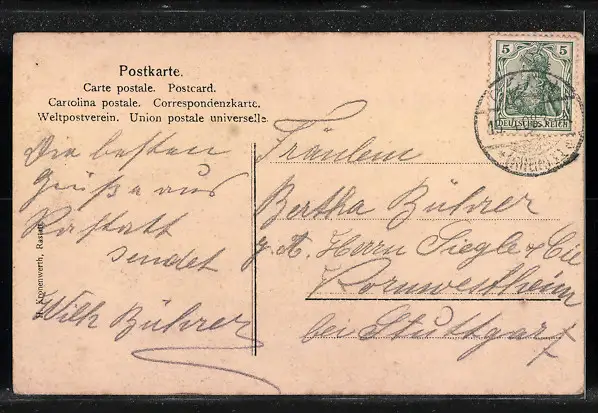 Postkarte.
Carte postale. Postcard.
Cartolina postale. Correspondenzkarte.
Weltpostverein. Union postale universelle.
5 5
DEUTSCHES REICH
Die besten
Grüße aus
Rastatt
sendet
Wilh Bührer
H. Kronenwerth, Rastatt
Fräulein
Bertha Bührer
z. A. Herrn Siegle & Cie
Kornwestheim
bei Stuttgart